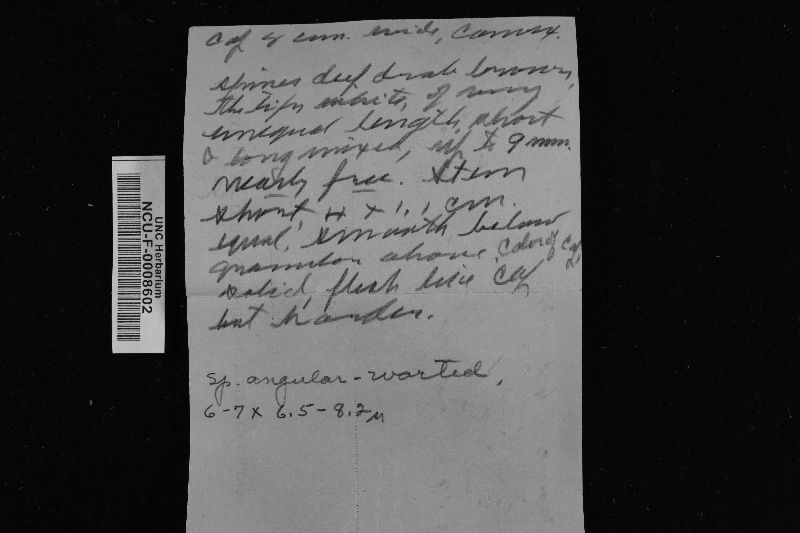 UNC Herbarium
NCU-F-0008602
Cap 8 cm. wide, Convex.
spines deep drab brown,
the tips white, of very
unequal length, short
& long mixed, up to 9 mm.
nearly free. Stem
short, 4 x 1.1 cm.
equal, smooth below
granular above, Color of Cap,
solid, flesh like Cap
but harder.
Sp. angular-warted,
6-7 x 6.5-8.2µ